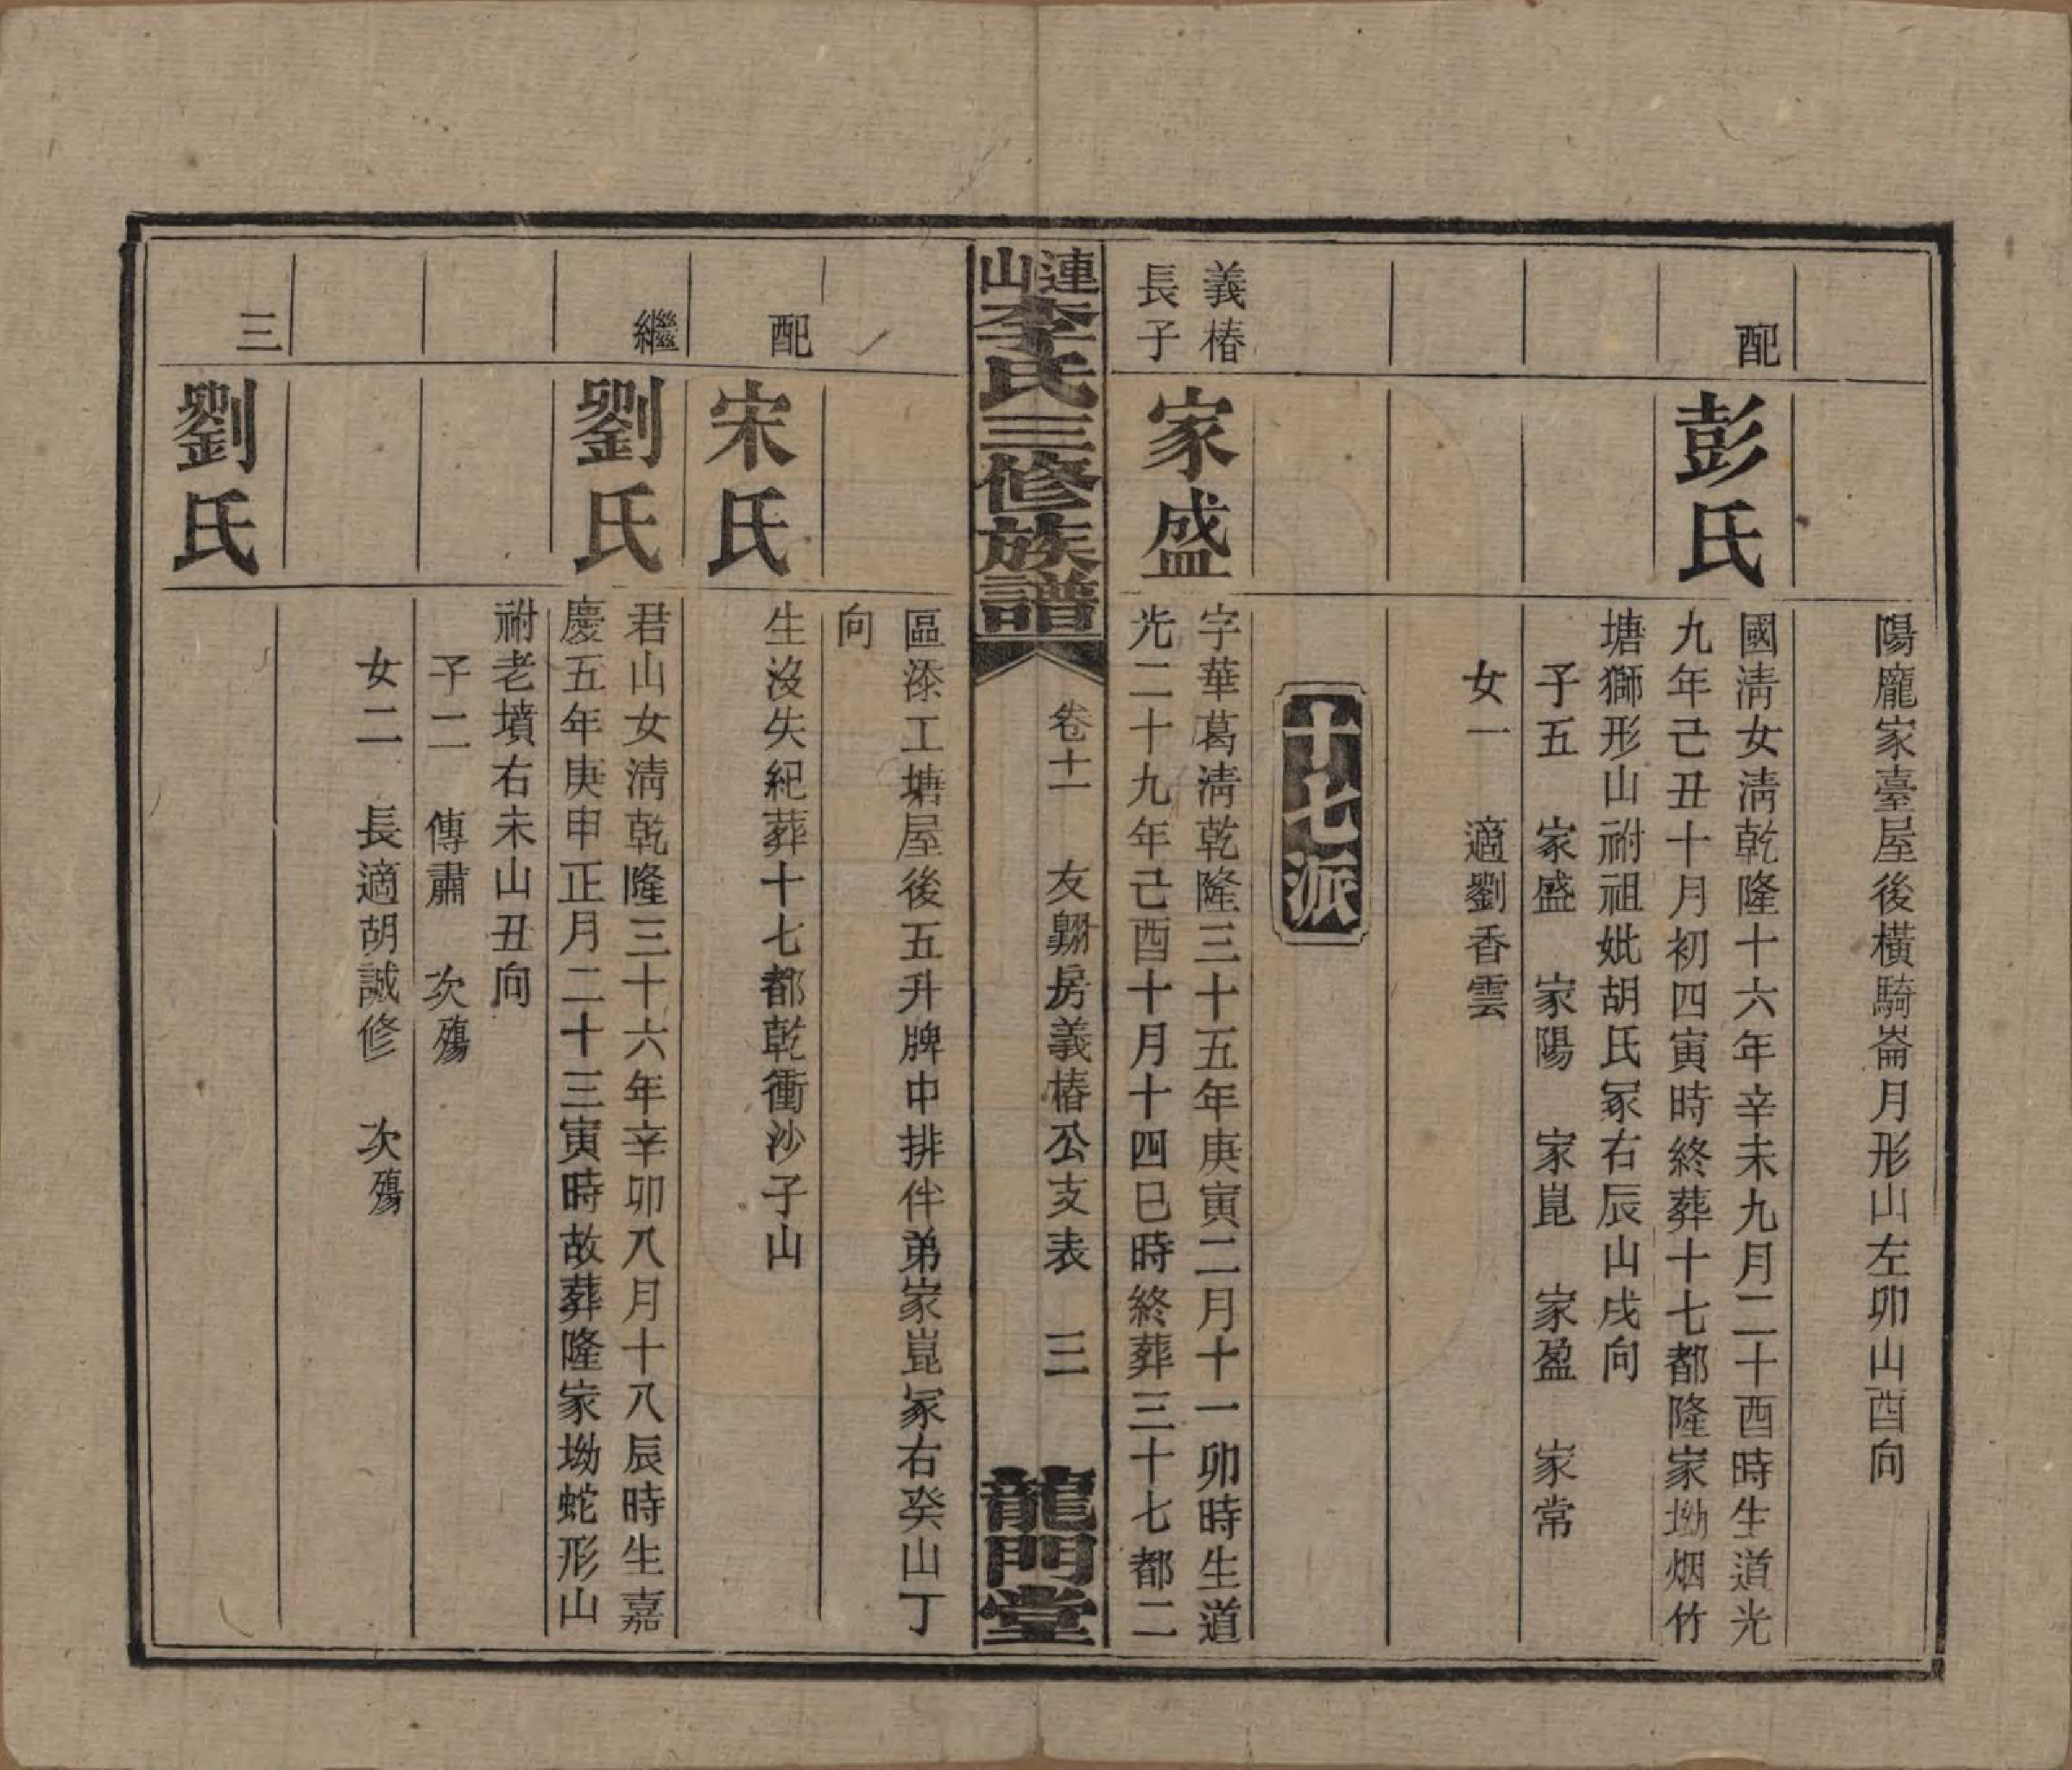 陽龐家臺屋後橫騎崙月形山左卯山酉向
配
彭氏
國淸女淸乾隆十六年辛未九月二十酉時生道光
九年己丑十月初四寅時終葬十七都隆家坳烟竹
塘獅形山祔祖妣胡氏冢右辰山戌向
子五　家盛　家陽　家崑　家盈　家常
女一　適劉香雲
十七派
義椿
長子
家盛
字華葛淸乾隆三十五年庚寅二月十一卯時生道
光二十九年己酉十月十四巳時終葬三十七都二
連山李氏三修族譜
卷十一　友翺房義椿公支表　三
龍門堂
區漆工塘屋後五升牌中排伴弟家崑冢右癸山丁
向
配
宋氏
生沒失紀葬十七都乾衝沙子山
繼
劉氏
君山女淸乾隆三十六年辛卯八月十八辰時生嘉
慶五年庚申正月二十三寅時故葬隆家坳蛇形山
祔老墳右未山丑向
子二　傳肅　次殤
女二　長適胡誠修　次殤
三
劉氏